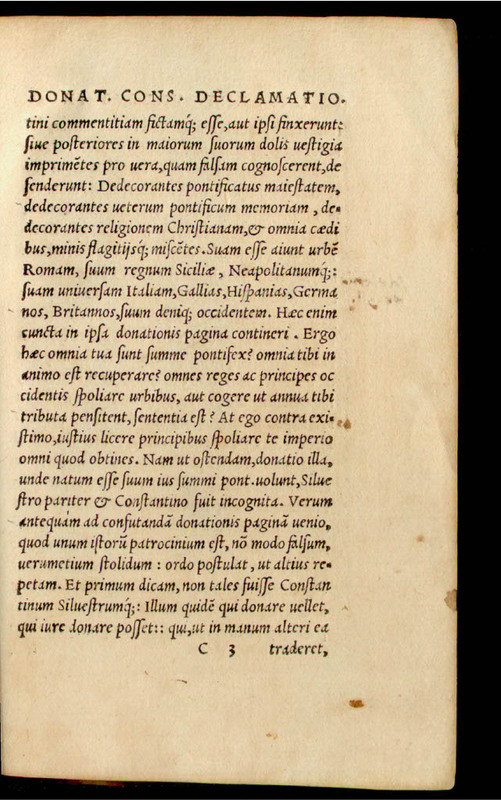 DONAT. CONS. DECLAMATIO.
tini commentitiam fictamq́; esse, aut ipsi finxerunt:
siue posteriores in maiorum suorum dolis uestigia
imprimẽtes pro uera, quam falsam cognoscerent, de
fenderunt: Dedecorantes pontificatus maiestatem,
dedecorantes ueterum pontificum memoriam, de-
decorantes religionem Christianam, & omnia cædi
bus, minis flagitijsq́; miscẽtes. Suam esse aiunt urbẽ
Romam, suum regnum Siciliæ, Neapolitanumq́;:
suam uniuersam Italiam, Gallias, Hispanias, Germa
nos, Britannos, suum deniq; occidentem. Hæc enim
cuncta in ipsa donationis pagina contineri. Ergo
hæc omnia tua sunt summe pontifex? omnia tibi in
animo est recuperare? omnes reges ac principes oc
cidentis spoliare urbibus, aut cogere ut annua tibi
tributa pensitent, sententia est? At ego contra exi-
stimo, iustius licere principibus spoliare te imperio
omni quod obtines. Nam ut ostendam, donatio illa,
unde natum esse suum ius summi pont. uolunt, Silue
stro pariter & Constantino fuit incognita. Verum
antequàm ad confutandã donationis paginã uenio,
quod unum istorũ patrocinium est, nõ modo falsum,
uerumetium stolidum: ordo postulat, ut altius re-
petam. Et primum dicam, non tales fuisse Constan
tinum Siluestrumq́;: Illum quidẽ qui donare uellet,
qui iure donare posset:: qui, ut in manum alteri ea
C 3 traderet,